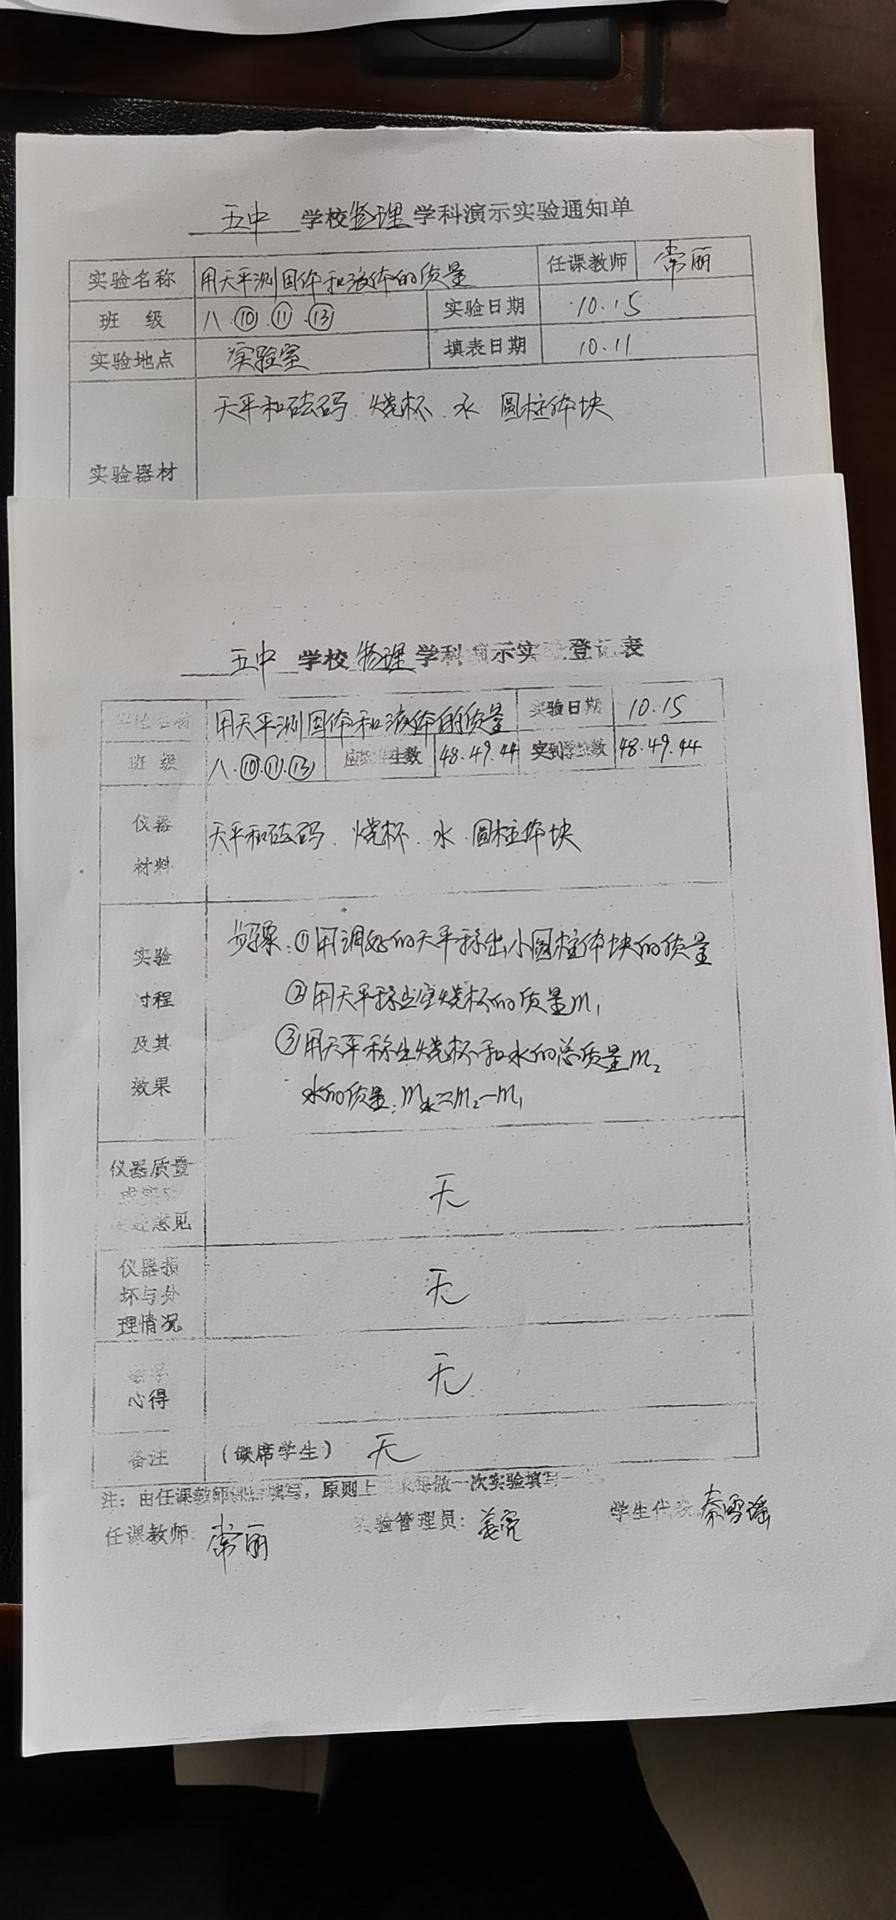 五中 学校物理学科演示实验通知单
实验名称 用天平测固体和液体的质量 任课教师 常丽
班 级 八.⑩.⑪.⑬ 实验日期 10.15
实验地点 实验室 填表日期 10.11
实验器材 天平和砝码、烧杯、水 圆柱体块
五中 学校物理学科演示实验登记表
实验名称 用天平测固体和液体的质量 实验日期 10.15
班 级 八.⑩.⑪.⑬ 应到学生数 48.49.44 实到学生数 48.49.44
仪器
材料
天平和砝码、烧杯、水、圆柱体块
实验
过程
及其
效果
步骤:①用调好的天平称出小圆柱体块的质量
②用天平称出空烧杯的质量m₁
③用天平称出烧杯和水的总质量m₂
水的质量:m水=m₂-m₁
仪器质量
或实验
意见
无
仪器损
坏与处
理情况
无
心得
无
备注 (缺席学生) 无
注:由任课教师 填写,原则上 每做一次实验填写一
任课教师: 常丽 实验管理员: 姜亮 学生代表 秦雪谣